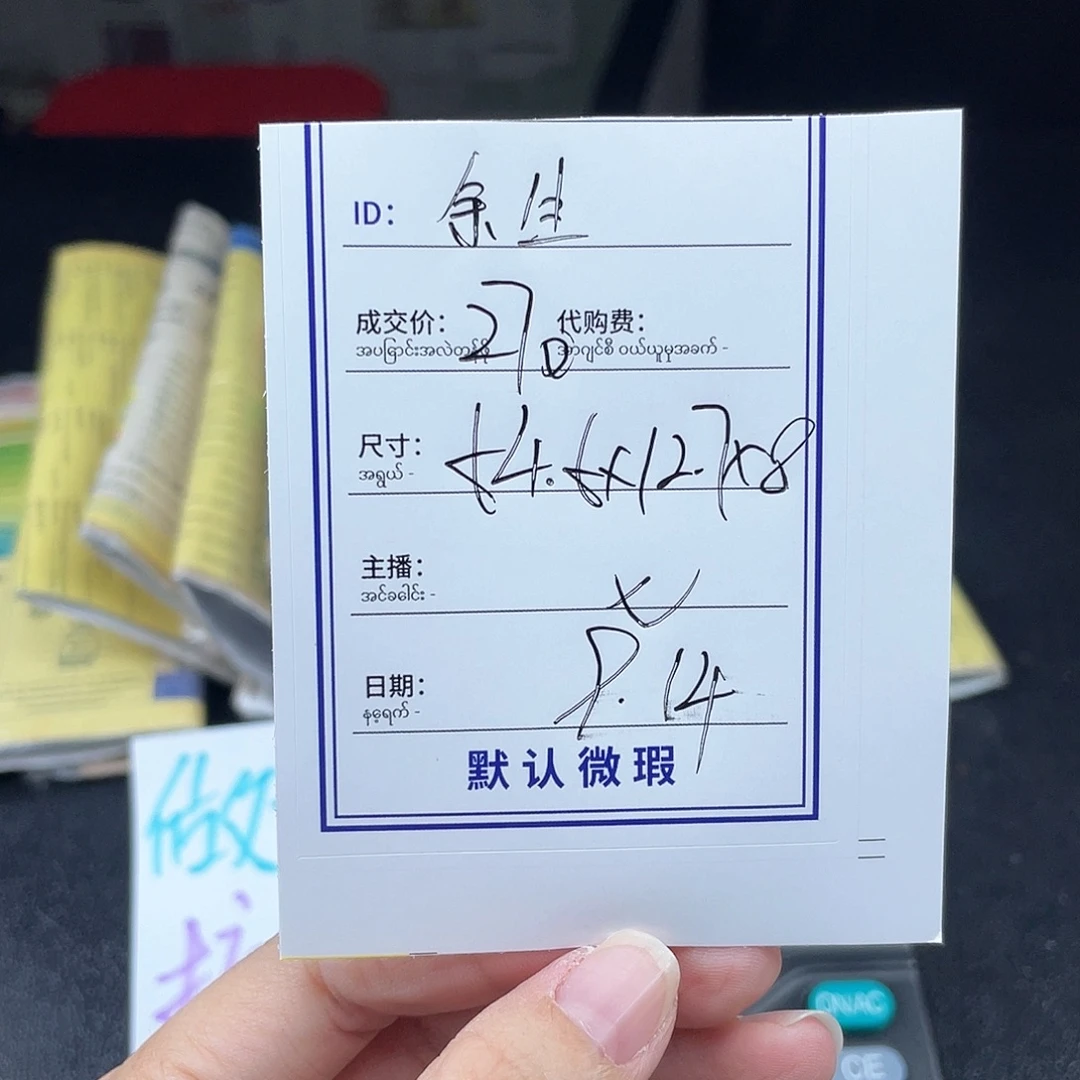 ID: 余生
成交价: 270 代购费:
အပြောင်းအလဲတန်ဖိုး အာဂျင်စီ ဝယ်ယူမှုအခက် -
尺寸:
အရွယ် -
主播:
အင်ခေါင်း -
日期: 8.14
နေ့ရက် -
默认微瑕
做
ON/AC
CE